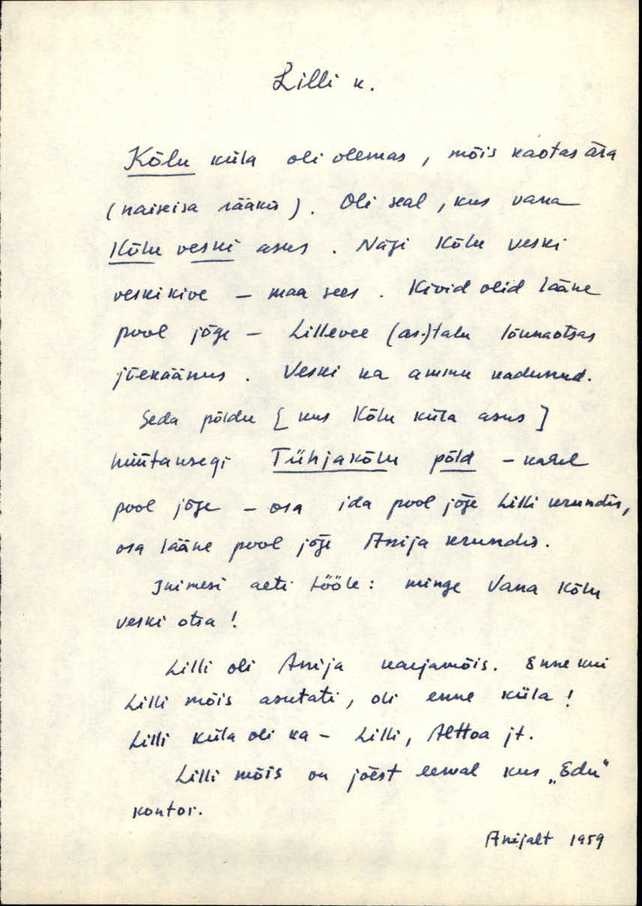 Lilli k.
Kõlu küla oli olemas, mõis kaotas ära
(naiseisa rääkis). Oli seal, kus vana
Kõlu veski asus. Nägi Kõlu veski
veskikive – maa sees. Kivid olid lääne
pool jõge – Lillevee (as.) talu lõunaotsas
jõekäänus. Veski ka ammu kadunud.
Seda põldu [kus Kõlu küla asus]
hüütansegi Tühjakõlu põld – kahel
pool jõge – osa ida pool jõge Lilli krundis,
osa lääne pool jõge Anija krundis.
Inimesi aeti tööle: minge Vana Kõlu
veski otsa!
Lilli oli Anija karjamõis. Enne kui
Lilli mõis asutati, oli enne küla!
Lilli küla oli ka – Lilli, Alttoa jt.
Lilli mõis on jõest eemal kus „Edu"
kontor.
Anijalt 1959